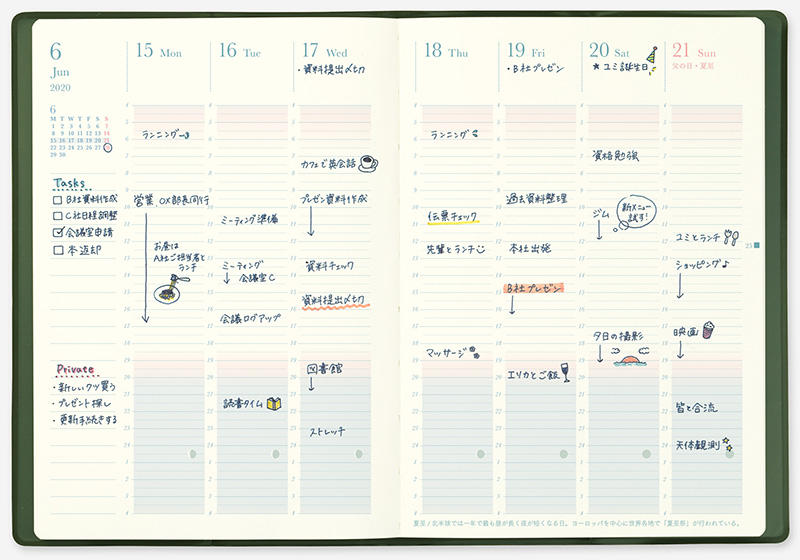 6
Jun
2020
6
M T W T F S S
1 2 3 4 5 6 7
8 9 10 11 12 13 14
15 16 17 18 19 20 21
22 23 24 25 26 27 28
29 30
Tasks
B社資料作成
C社日程調整
会議室申請
本返却
Private
・新しいクツ買う
・プレゼント探し
・更新手続きする
15 Mon
ランニング
営業、OX部長同行
お昼は
A社ご担当者と
ランチ
16 Tue
ミーティング準備
ミーティング
会議室C
会議ログアップ
読書タイム
17 Wed
・資料提出〆切
カフェで英会話
プレゼン資料作成
資料チェック
資料提出〆切
図書館
ストレッチ
18 Thu
ランニング
伝票チェック
先輩とランチ
マッサージ
19 Fri
・B社プレゼン
過去資料整理
本社出発
B社プレゼン
エリカとご飯
20 Sat
★ユミ誕生日
資格勉強
ジム
新メニュー
試す!
夕日の撮影
21 Sun
父の日・夏至
ユミとランチ
ショッピング♪
映画
皆と合流
天体観測
25
夏至 / 北半球では一年で最も昼が長く夜が短くなる日。ヨーロッパを中心に世界各地で「夏至祭」が行われている。